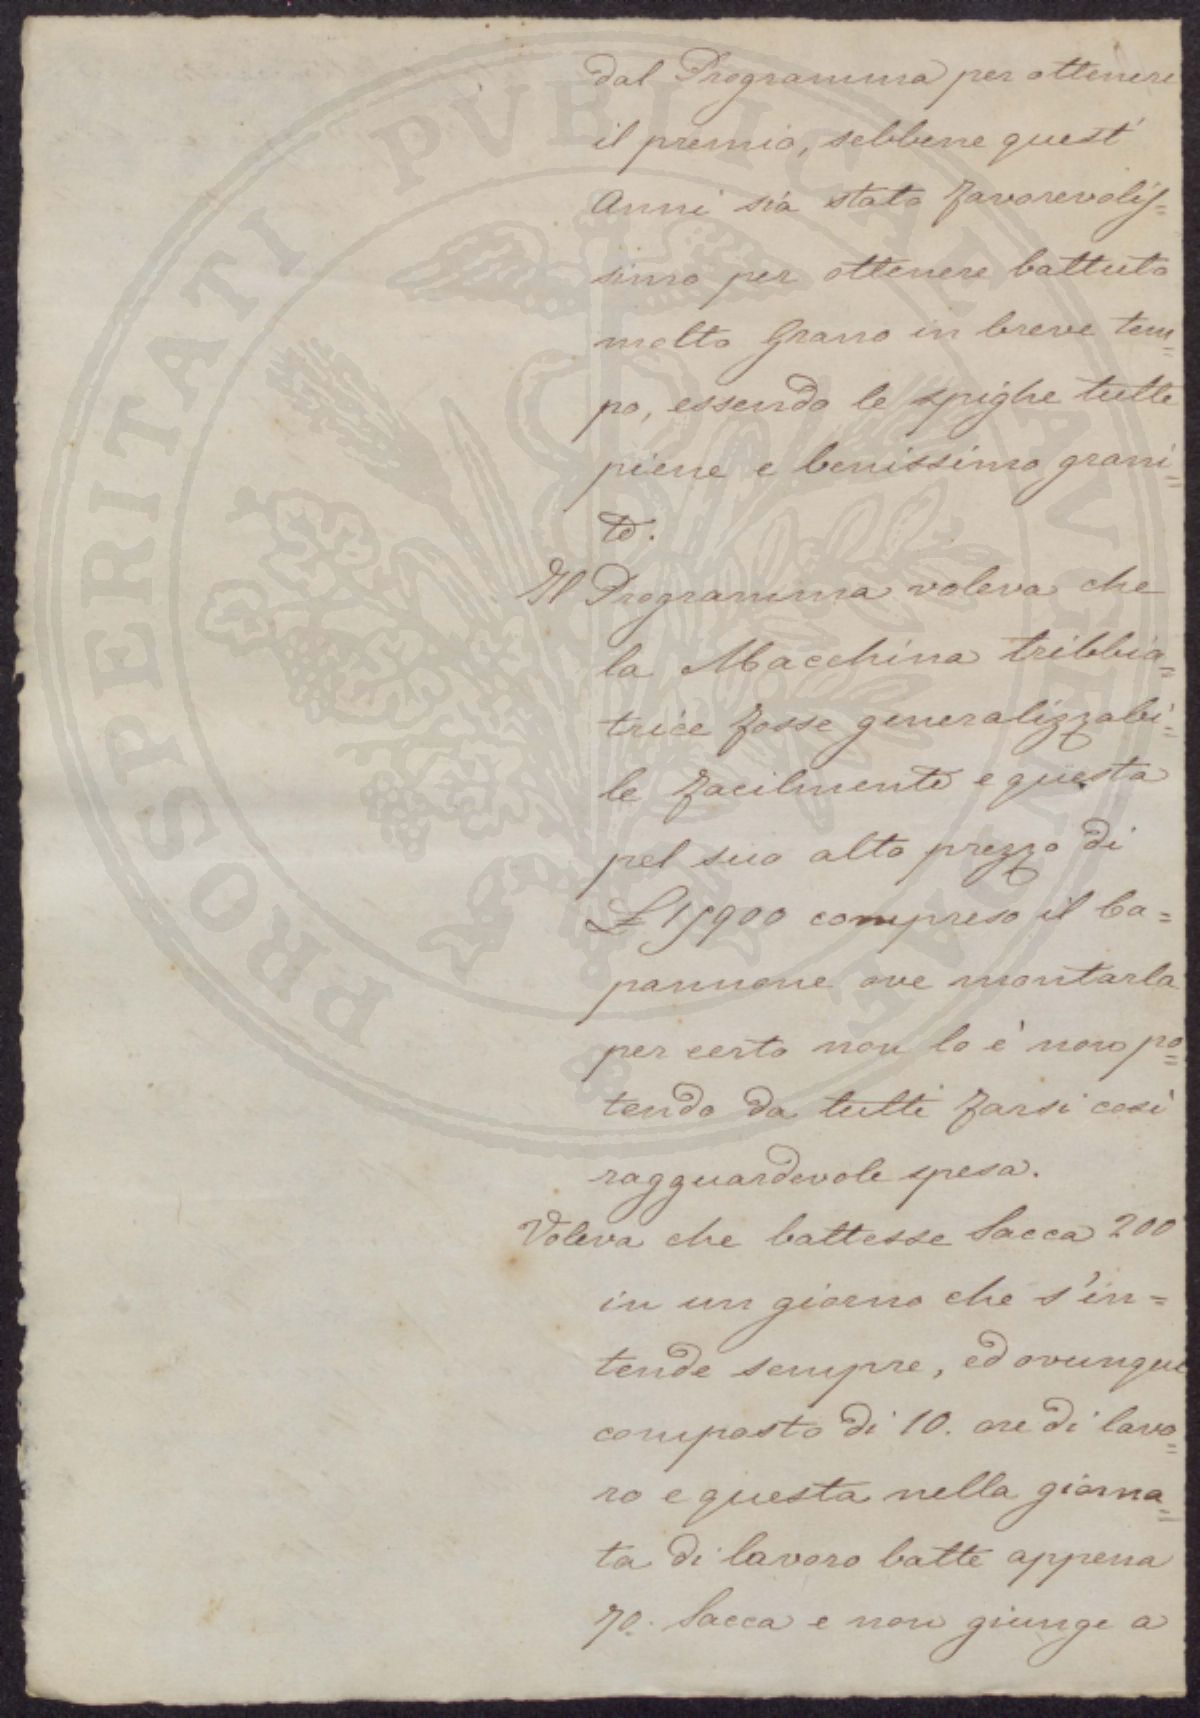 dal Programma per ottenere
il premio, sebbene quest'
Anni sia stato favorevolis=
simo per ottenere battuto
molto Grano in breve tem=
po, essendo le spighe tutte
piene e benissimo grani=
te.
Il Programma voleva che
la Macchina tribbia=
trice fosse generalizzabi=
le facilmente e questa
pel suo alto prezzo di
£ 15900 compreso il ca=
pannone ove montarla
per certo non lo è non po=
tendo da tutti farsi così
ragguardevole spesa.
Voleva che battesse Sacca 200
in un giorno che s'in=
tende sempre, ed ovunque
composto di 10. ore di lavo=
ro e questa nella giorna=
ta di lavoro batte appena
70. Sacca e non giunge a
PROSPERITATI PVBLICAE AVGENDAE